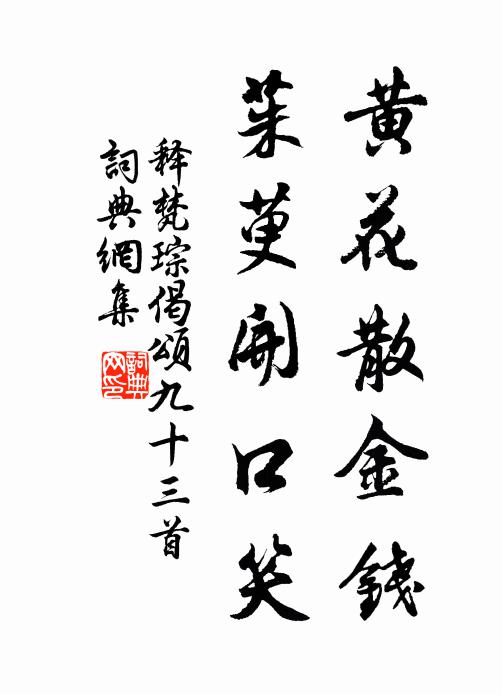 黄花散金錢
茱萸開口笑
释梵琮偈頌九十三首
詞典網集
詞典网印